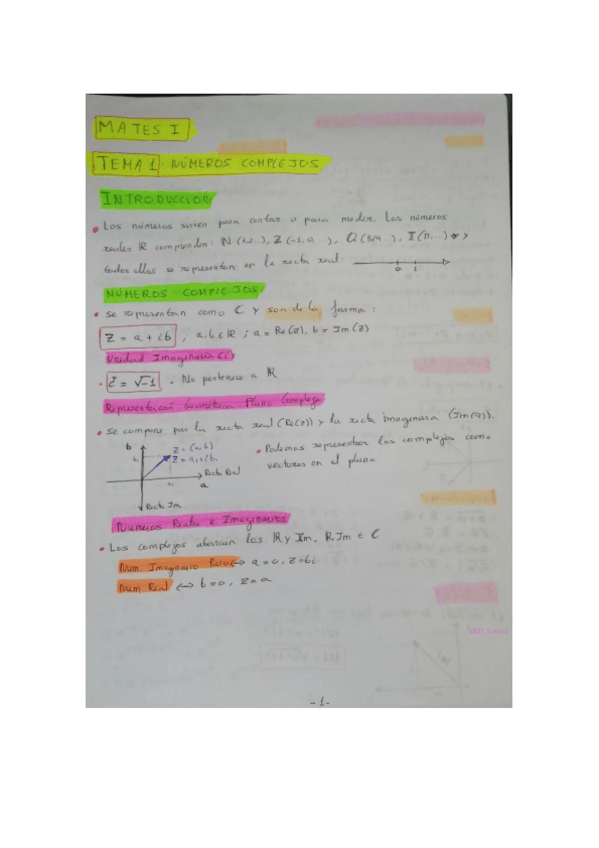 MATES I
TEMA 1: NÚMEROS COMPLEJOS
INTRODUCCIÓN
• Los números sirven para contar o para medir. Los números
reales ℝ comprenden: N (1,2...), Z (-1,0 ...), Q (5/4...), I (π,...) y
todos ellos se representan en la recta real.
0 1
NÚMEROS COMPLEJOS
• Se representan como C y son de la forma:
Z = a + ib ; a, b ∈ ℝ ; a = Re(z), b = Im(z)
Unidad Imaginaria (i)
• i = √-1 . No pertenece a ℝ
Representación Geométrica. Plano Complejo
• Se compone por la recta real (Re(z)) y la recta imaginaria (Im(z)).
b
Z = (a, b)
Z = a + ib
Recta Real
a
Recta Im
• Podemos representar los complejos como
vectores en el plano
Números Reales e Imaginarios
• Los complejos abarcan los ℝ y Im, ℝ, Im ∈ C
Num. Imaginario Puro ⇔ a = 0, Z = bi
Num Real ⇔ b = 0, Z = a
- 1 -